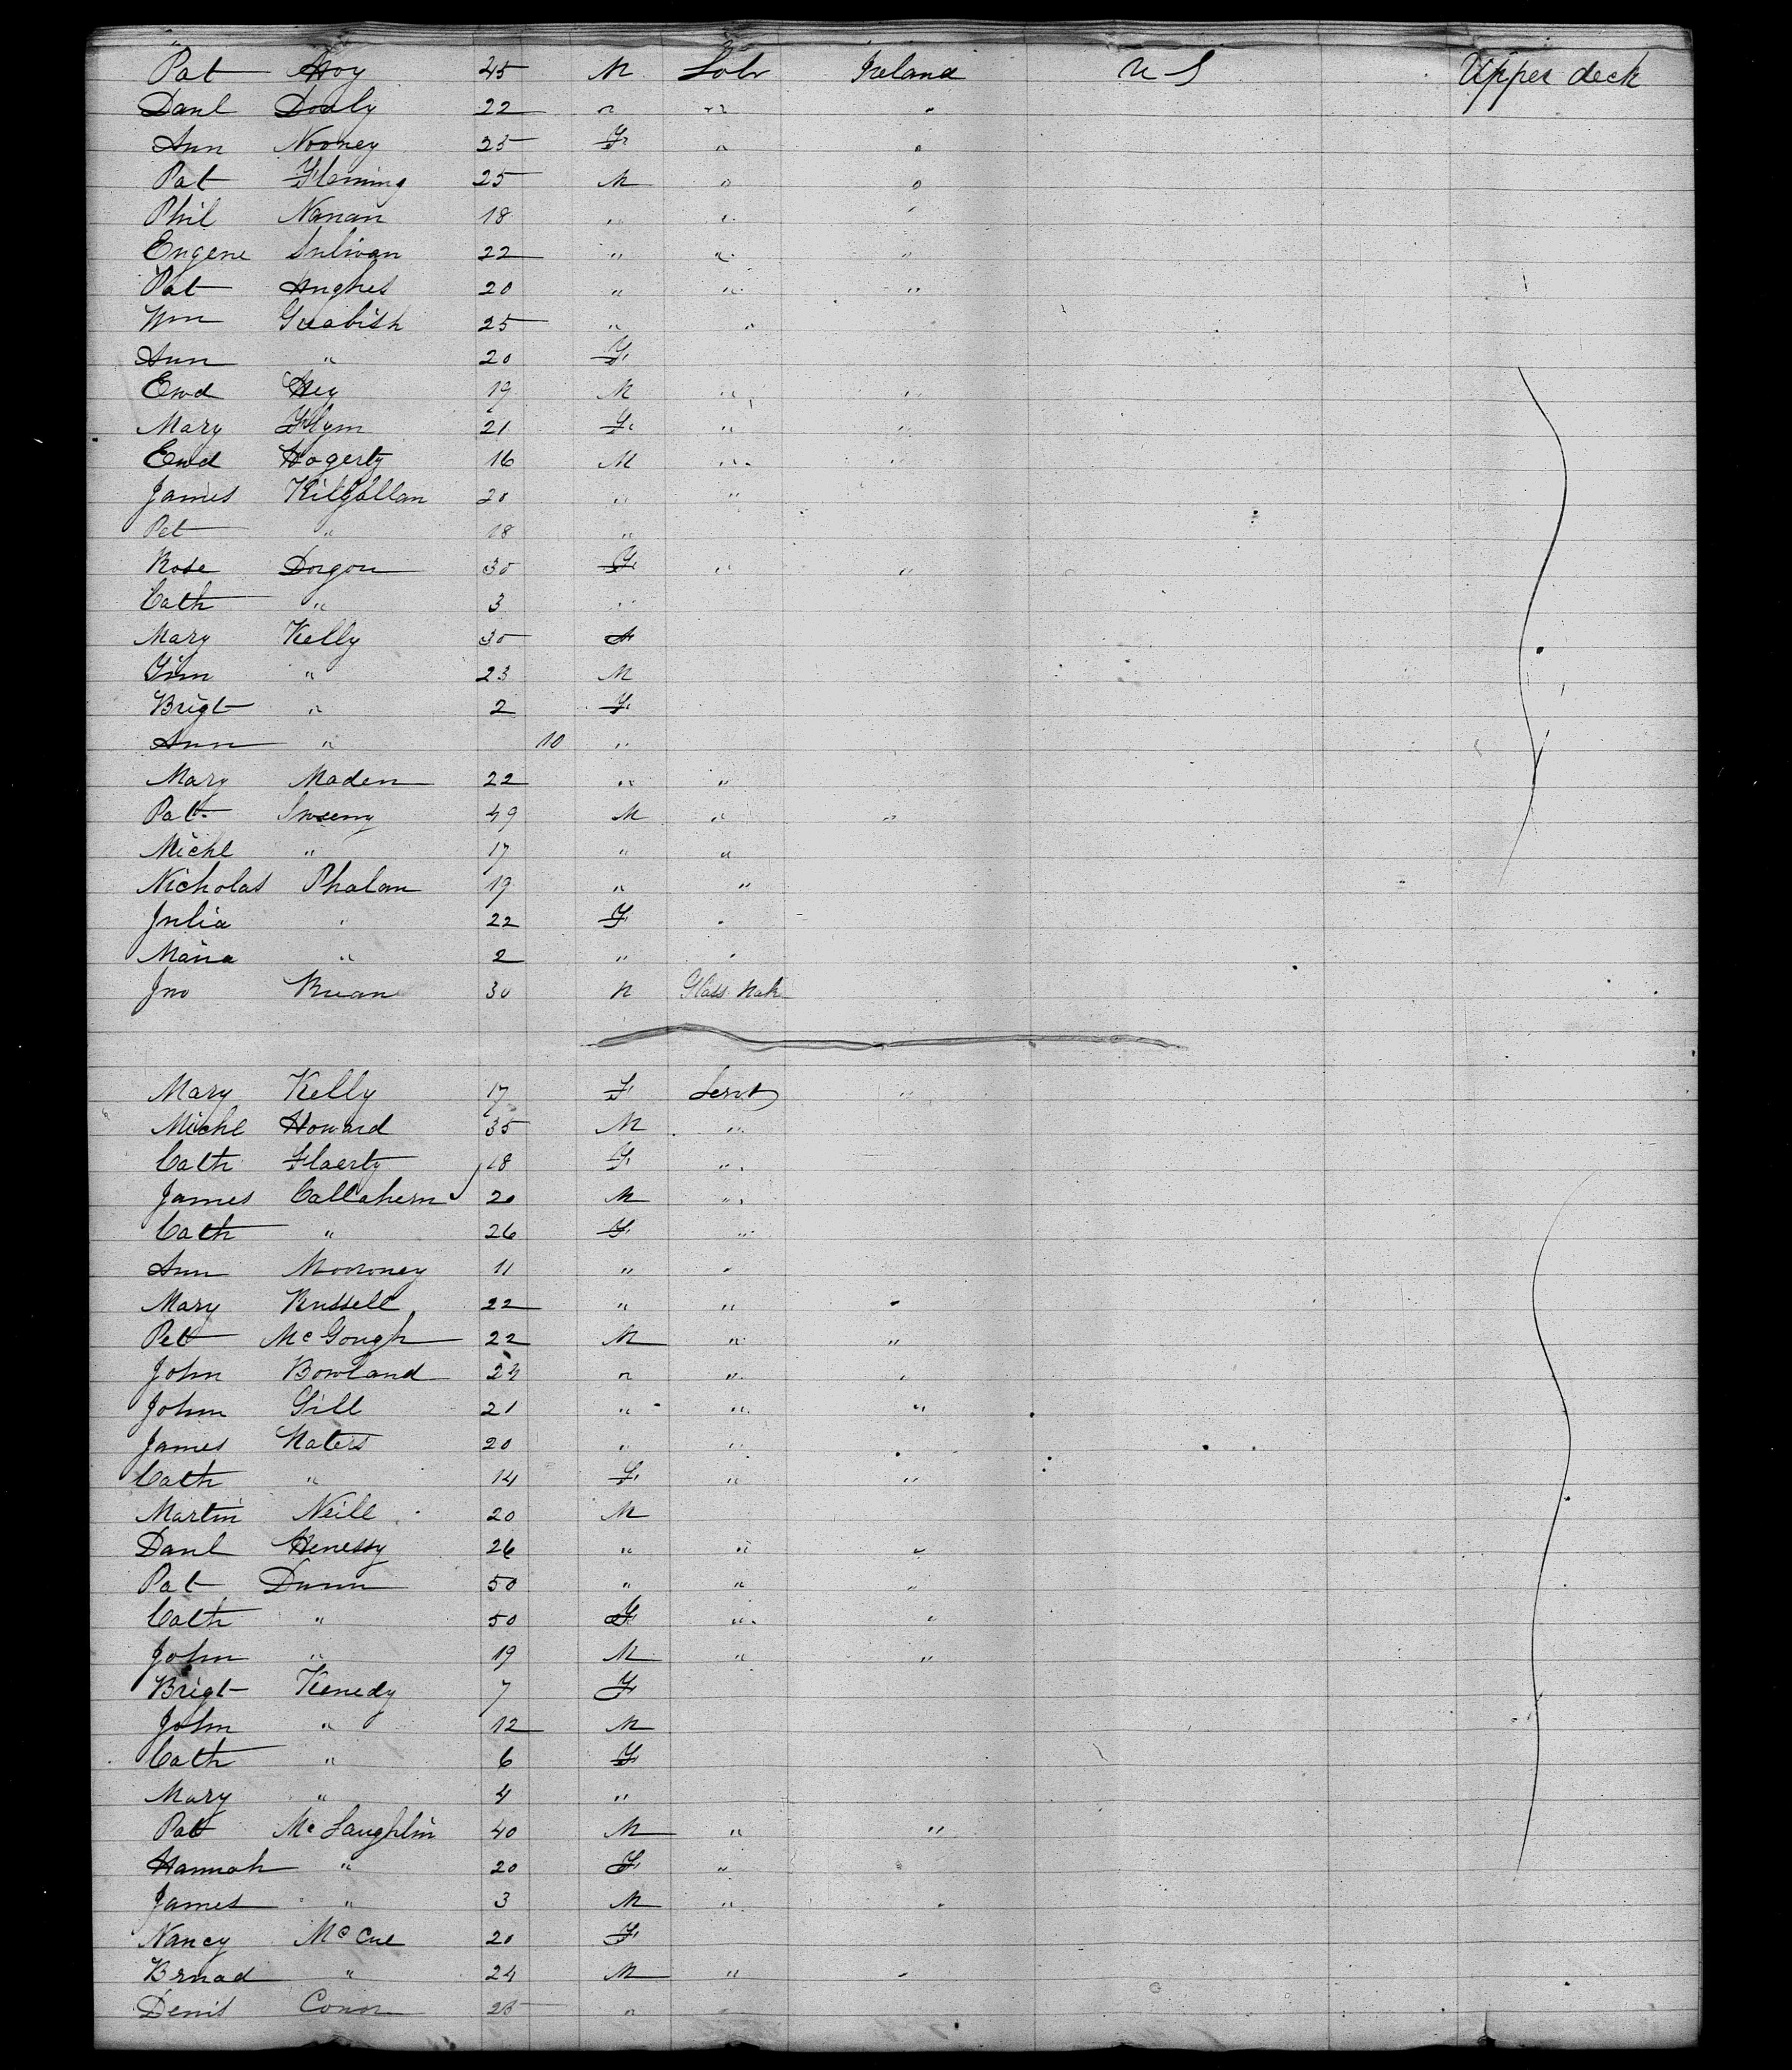 Pat Hoy 45 M Labr Ireland U S Upper deck
Danl Dealy 22 " " "
Ann Nooney 25 F " "
Pat Fleming 25 M " "
Phil Nanan 18 " " "
Eugene Sulivan 22 " " "
Pat Hughes 20 " " "
Wm 25 " "
Ann " 20 F
Ewd Hey 19 M " "
Mary Flynn 21 F " "
Ewd Hogerty 16 M " "
James Kilgallan 20 " "
Pet " 18 "
Rose Dorgon 30 F " "
Cath " 3 "
Mary Kelly 30 F
Tim " 23 M
Brigt " 2 F
Ann " 10 "
Mary Maden 22 " "
Pat Sweeny 49 M " "
Michl " 17 " "
Nicholas Phalan 19 " "
Julia " 22 F "
Maria " 2 " "
Jno 30 M Glass Mak
Mary Kelly 17 F Servt "
Michl Howard 35 M "
Cath Flaerty 18 F "
James Callahern 20 M "
Cath " 26 F "
Ann Mooroney 11 " "
Mary Russell 22 " " "
Pet McGough 22 M " "
John Bowland 24 " " "
John Gill 21 " " "
James Waters 20 " " "
Cath " 14 F " "
Martin Neill 20 M
Danl Henessy 26 " " "
Pat Dunn 50 " " "
Cath " 50 F " "
John " 19 M " "
Brigt Kenedy 7 F
John " 12 M
Cath " 6 F
Mary " 4 "
Pat McLaughlin 40 M " "
Hannah " 20 F "
James " 3 M " "
Nancy McCue 20 F
Brnad " 24 M " "
Denis Conor 25 "